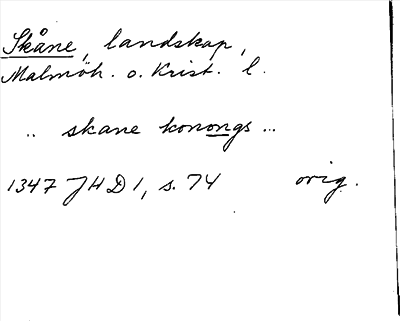 Skåne, landskap,
Malmöh. o. Krist. l.
.. skane konongs ..
1347 JHD 1, s. 74 orig.